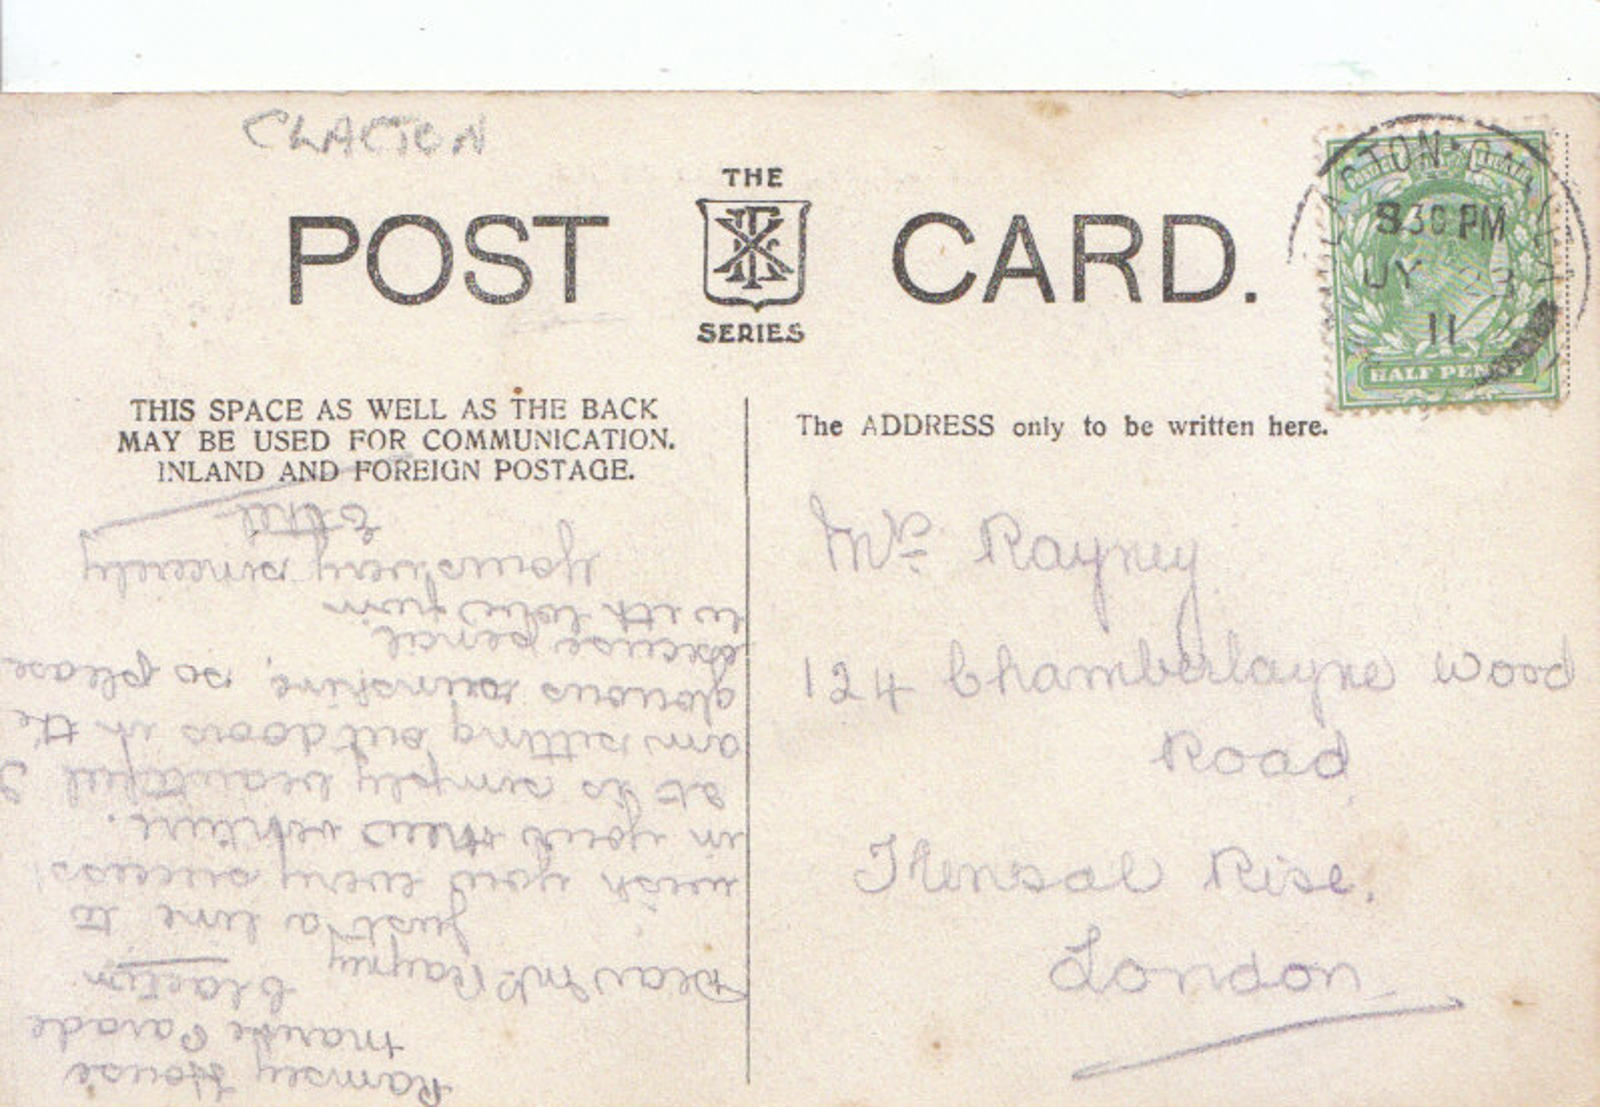 CLACTON
THE
POST CARD.
SERIES
THIS SPACE AS WELL AS THE BACK
MAY BE USED FOR COMMUNICATION.
INLAND AND FOREIGN POSTAGE.
The ADDRESS only to be written here.
CLACTON-ON-SEA
8.30 PM
JY 29
11
HALF PENNY
Mrs Rayney
124 Chamberlayne Wood
Road
Kensal Rise.
London
Ramsey House
Marine Parade
Clacton
Dear Mrs Rayney
Just a line to
wish you every success
in your new venture.
It is simply beautiful I
am sitting out doors in the
glorious sunshine, so please
excuse pencil
with love from
Yours very sincerely
Ethel